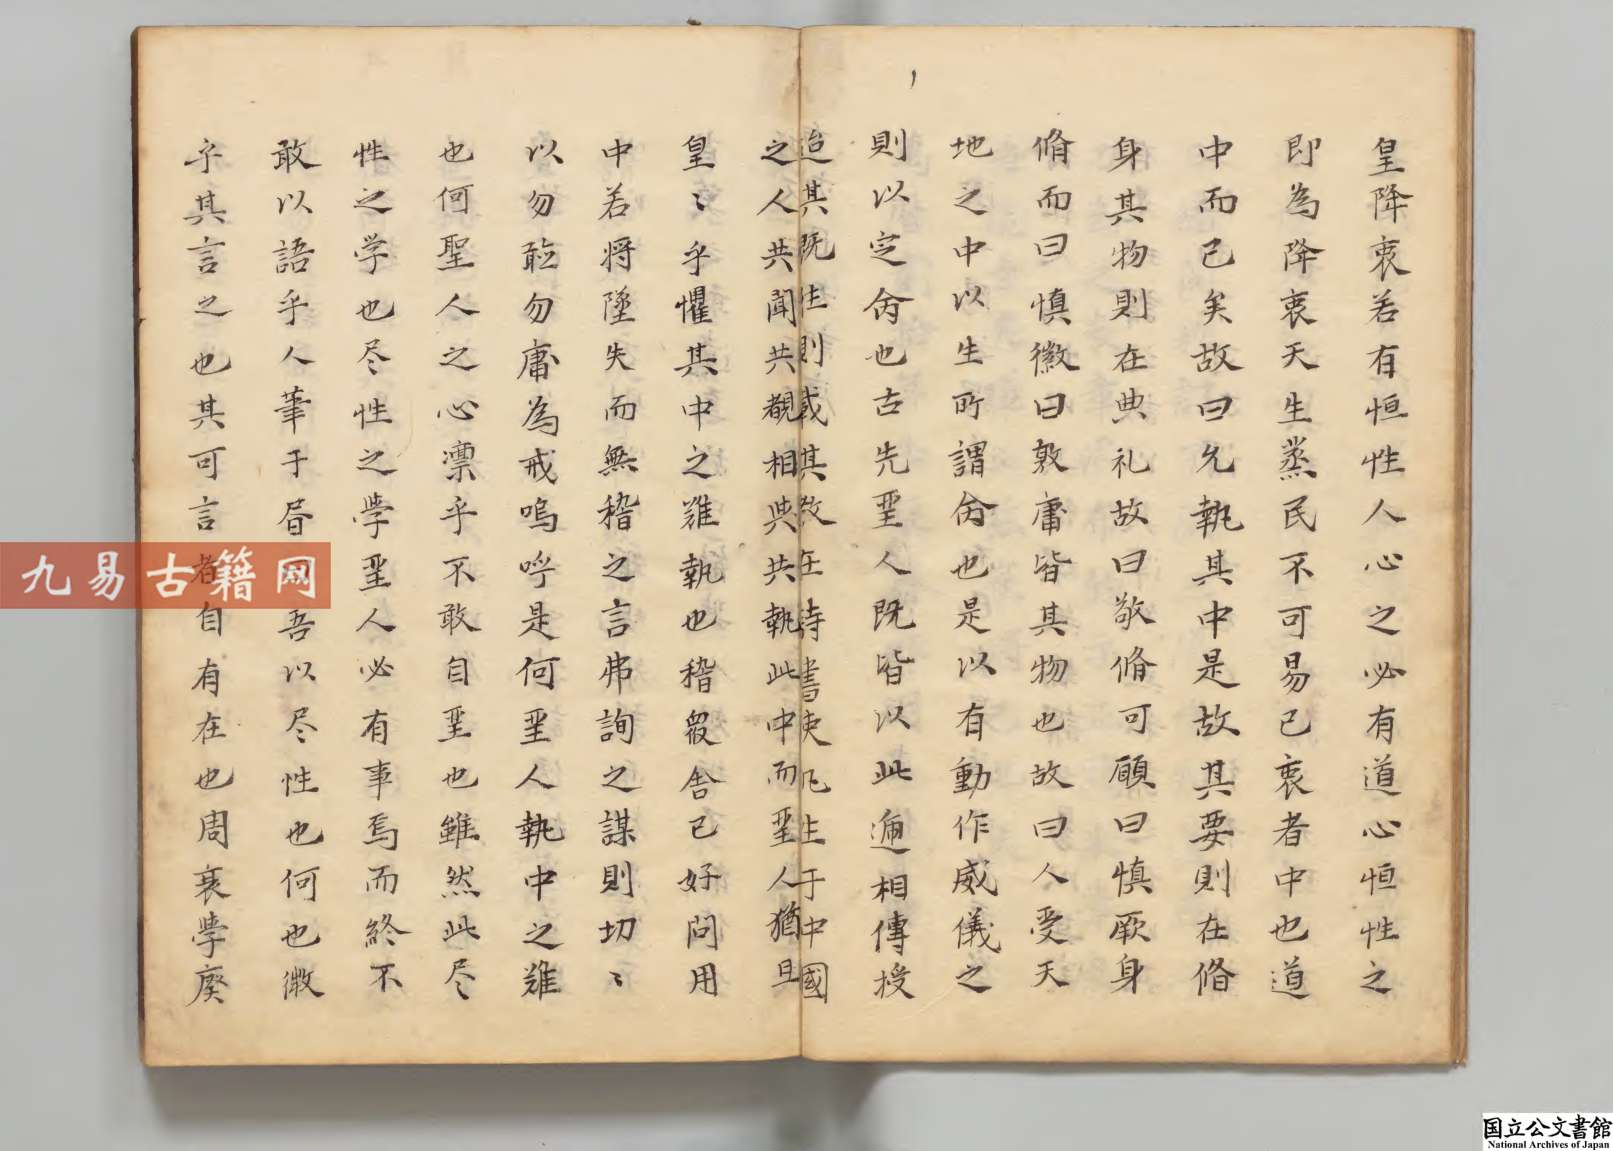 皇降衷若有恒性人心之必有道心恒性之
即為降衷天生蒸民不可易已衷者中也道
中而已矣故曰允執其中是故其要則在脩
身其物則在典礼故曰敬脩可願曰慎厥身
脩而曰慎徽曰敦庸皆其物也故曰人受天
地之中以生所謂命也是以有動作威儀之
則以定命也古先聖人既皆以此遞相傳授
迨其既往則載其教在詩書使凡生于中國
之人共聞共覩相與共執此中而聖人猶且
皇〻乎懼其中之難執也稽眾舍已好問用
中若将墜失而無稽之言弗詢之謀則切〻
以勿聽勿庸為戒嗚呼是何聖人執中之難
也何聖人之心凛乎不敢自聖也雖然此尽
性之学也尽性之學聖人必有事焉而終不
敢以語乎人筆于昬曰吾以尽性也何也微
乎其言之也其可言者自有在也周衰學廃
九易古籍网
国立公文書館
National Archives of Japan